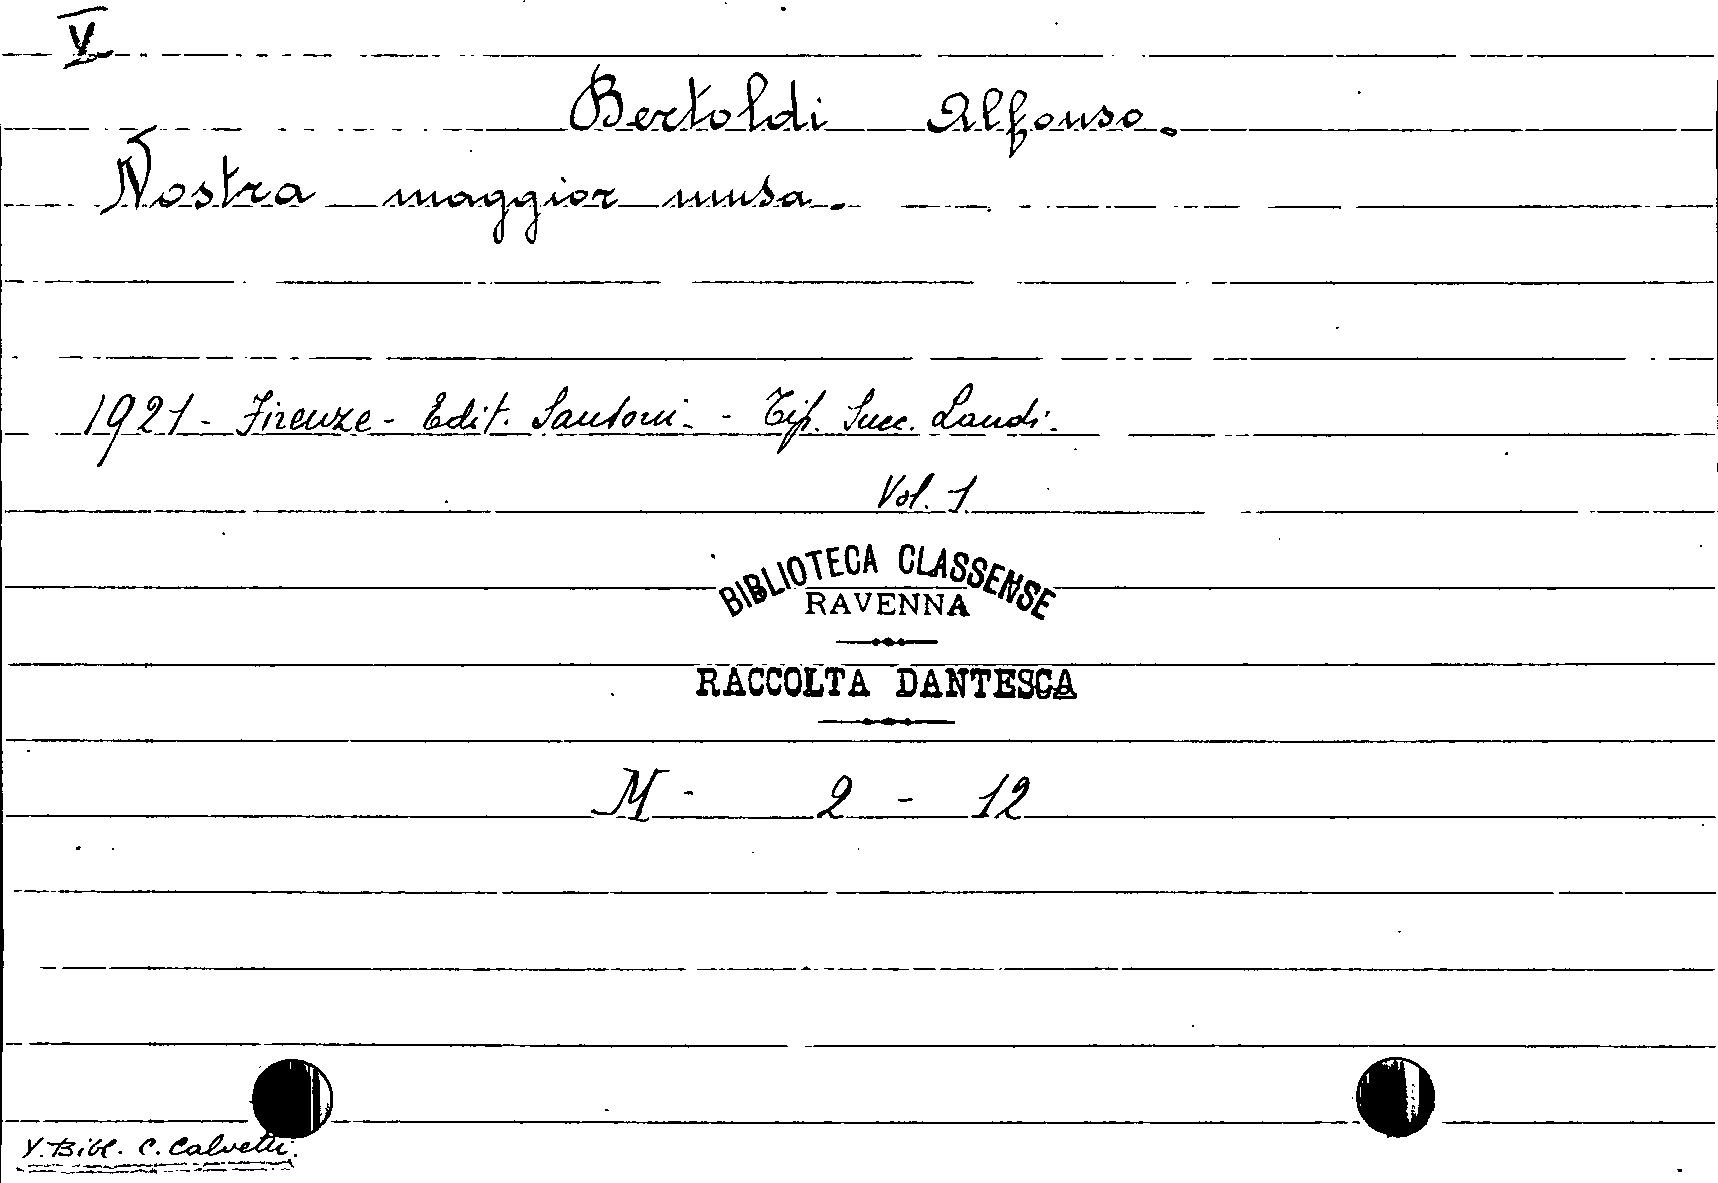 V
Bertoldi Alfonso.
Nostra maggior musa.
1921 - Firenze - Edit. Sansoni. - Tip. Succ. Landi.
Vol. 1
BIBLIOTECA CLASSENSE
RAVENNA
RACCOLTA DANTESCA
M - 2 - 12
V. Bibl. C. Calvetti.